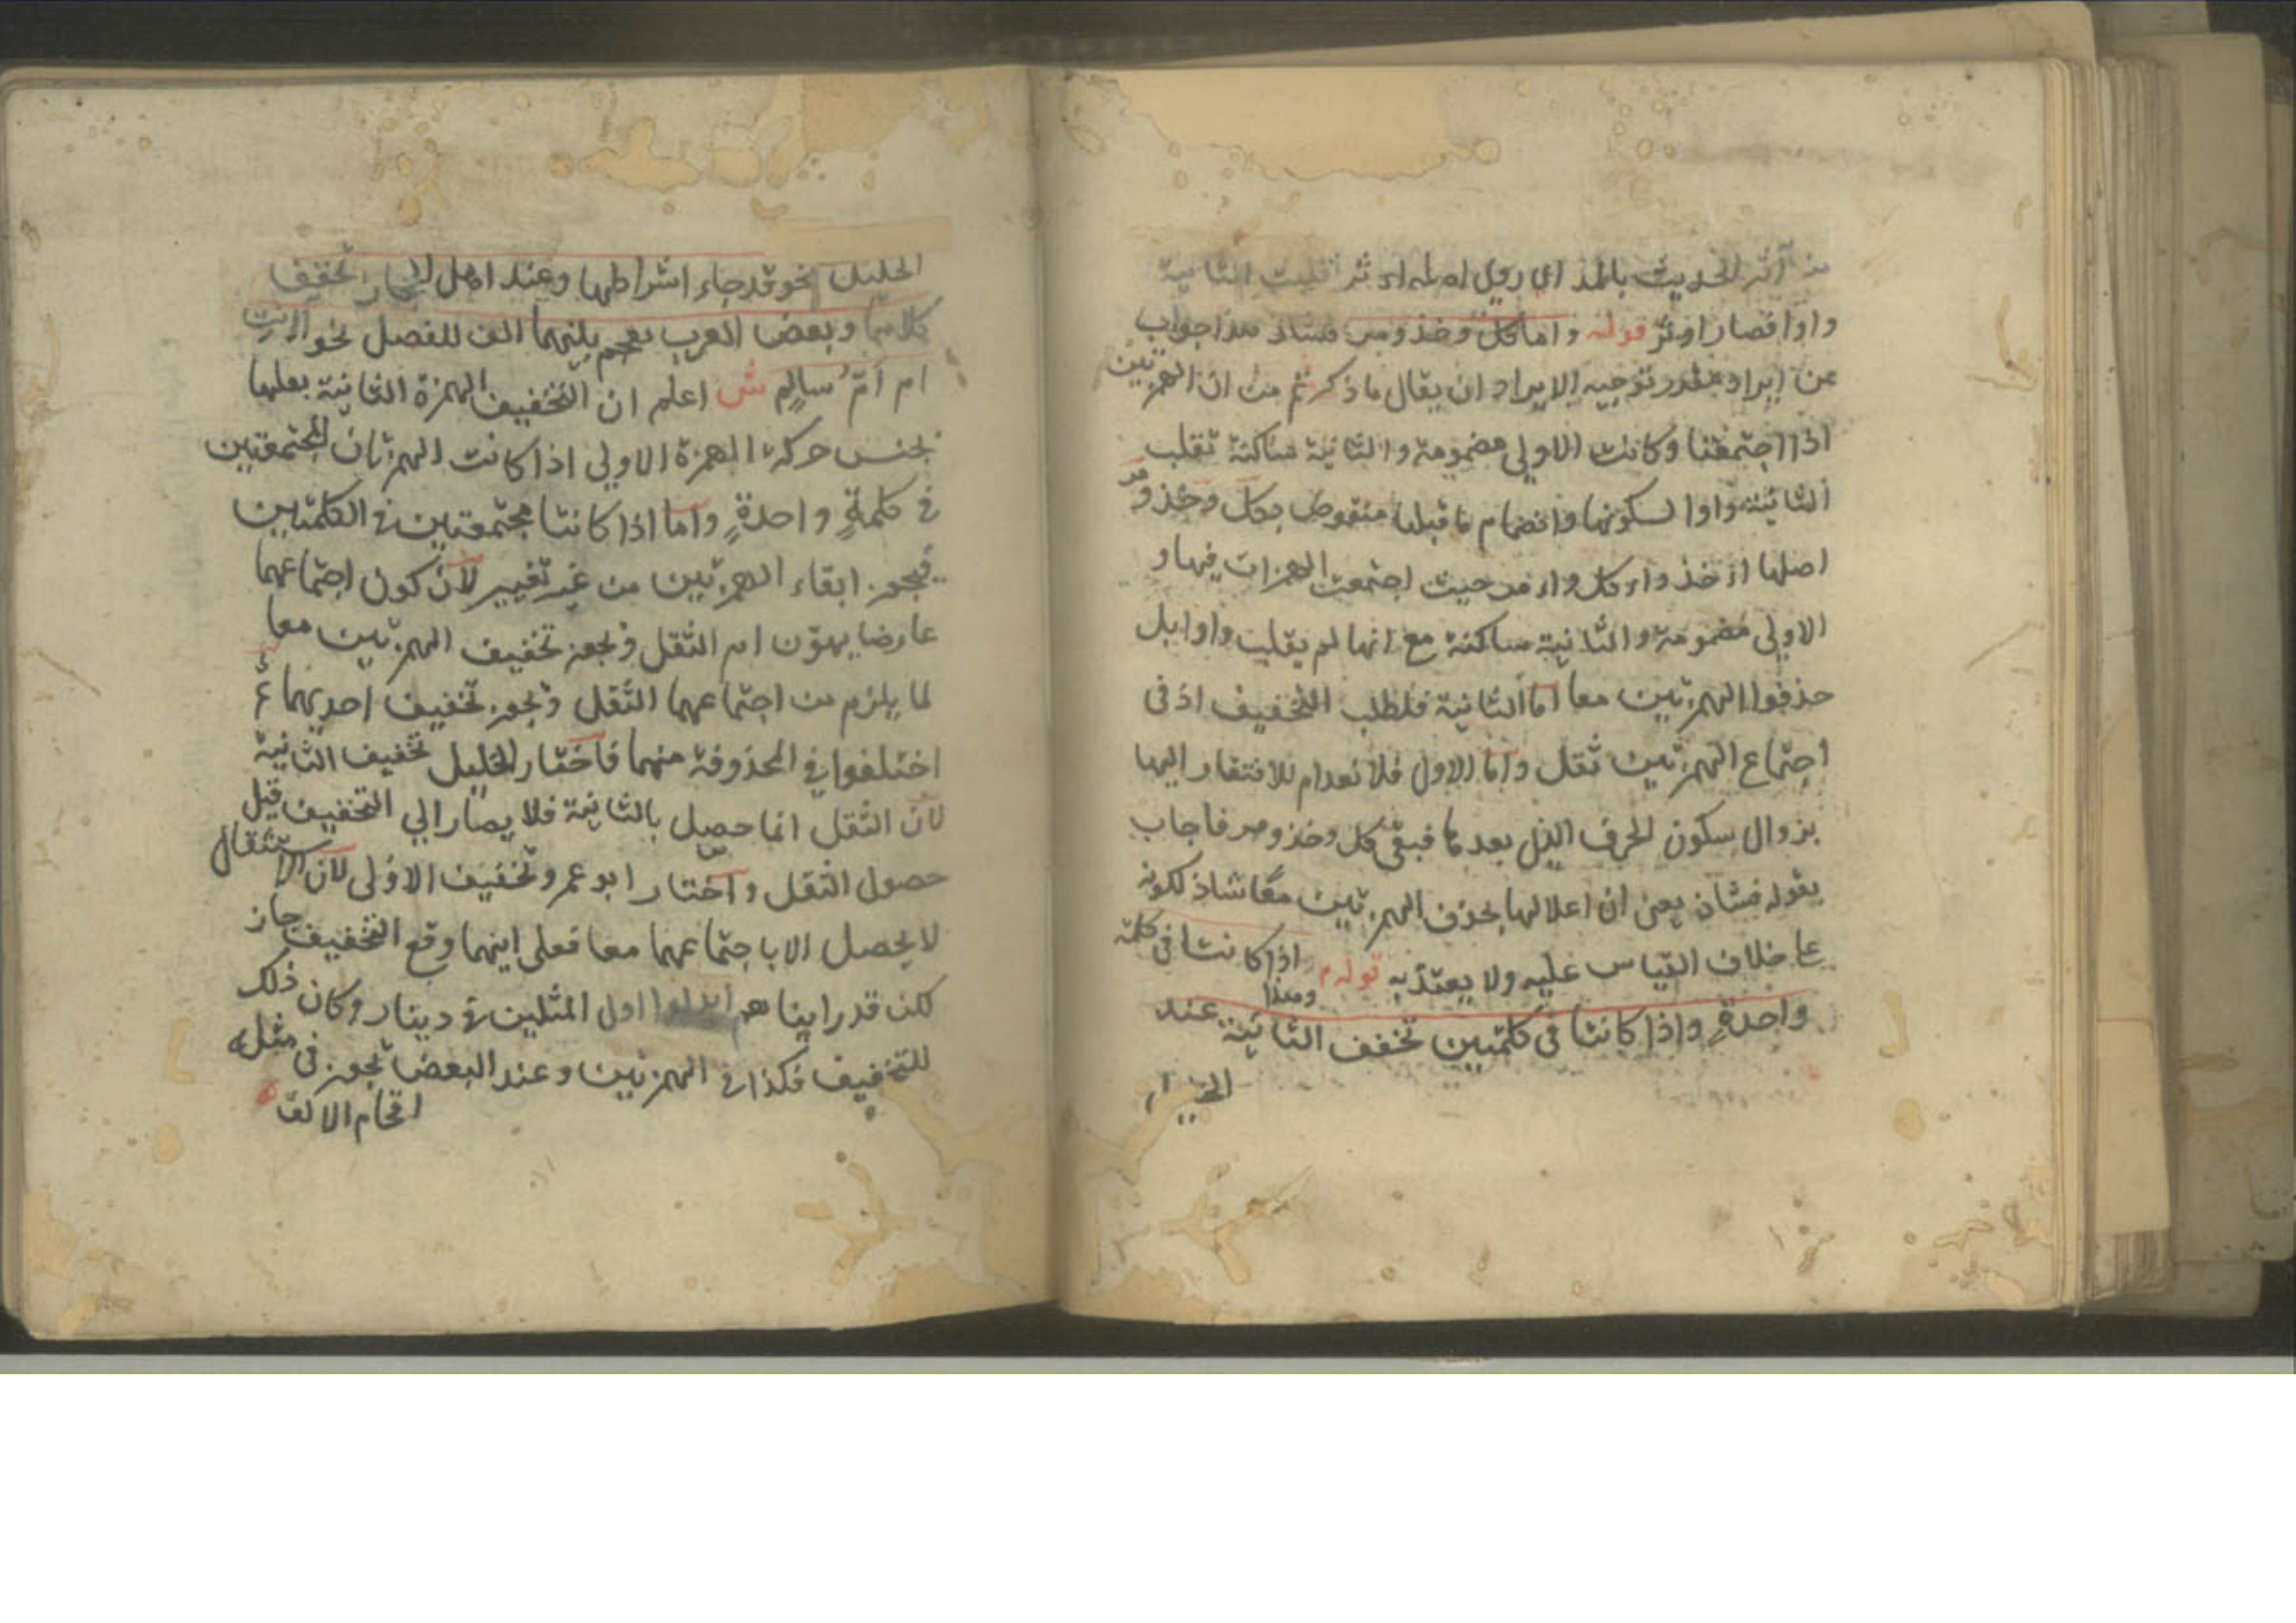 من آثر الحديث بالمد اي روي اصله اءثر قلبت الثانية
واوا فصار اوثر قوله واما كل وخذ ومر فشاذ هذا جواب
عن ايراد مقدر توجيه الايراد ان يقال ما ذكرتم من ان الهمزتين
اذا اجتمعتا وكانت الاولي مضمومة والثانية ساكنة تقلب
الثانية واوا لسكونها وانضمام ما قبلها منقوض بكل وخذ ومر
اصلها اءخذ واءكل واءمر حيث اجتمعت الهمزات فيها و
الاولي مضمومة والثانية ساكنة مع انها لم يقلب واوا بل
حذفوا الهمزتين معا اما الثانية فلطلب التخفيف اذ في
اجتماع الهمزتين ثقل واما الاول فلانعدام للافتقار اليها
بزوال سكون الحرف الذي بعدها فبقي كل وخذ ومر فاجاب
بقوله فشاذ يعني ان اعلالها بحذف الهمزتين معا شاذ لكونه
علي خلاف القياس عليه ولا يعتد به قوله وهذا اذا كانتا في كلمة
واحدةٍ واذا كانتا في كلمتين تخفف الثانية عند
الخليل
الخليل نحو قد جاء اشراطها وعند اهل الحجاز تخفيف
كلاهما وبعض العرب يقحم بينهما الف للفصل نحو اانت
ام اُمّ سالم ش اعلم ان التخفيف الهمزة الثانية بقلبها
بجنس حركة الهمزة الاولي اذا كانت الهمزتان المجتمعتين
في كلمةٍ واحدةٍ واما اذا كانتا مجتمعتين في الكلمتين
فيجوز ابقاء الهمزتين من غير تغيير لان كون اجتماعهما
عارضا يهوّن امر الثقل ويجوز تخفيف الهمزتين معا
لما يلزم من اجتماعهما الثقل ويجوز تخفيف احديهما ثم
اختلفوا في المحذوفة منهما فاختار الخليل تخفيف الثانية
لان الثقل انما حصل بالثانية فلا يصار الي التخفيف قبل
حصول الثقل واختار ابو عمرو تخفيف الاولى لان الاستثقال
لا يحصل الا باجتماعهما معا فعلى اينهما وقع التخفيف جاز
لكن قد راينا هم ابدلوا اول المثلين في دينار وكان ذلك
للتخفيف فكذا في الهمزتين وعند البعض يجوز في مثله
اقحام الالف